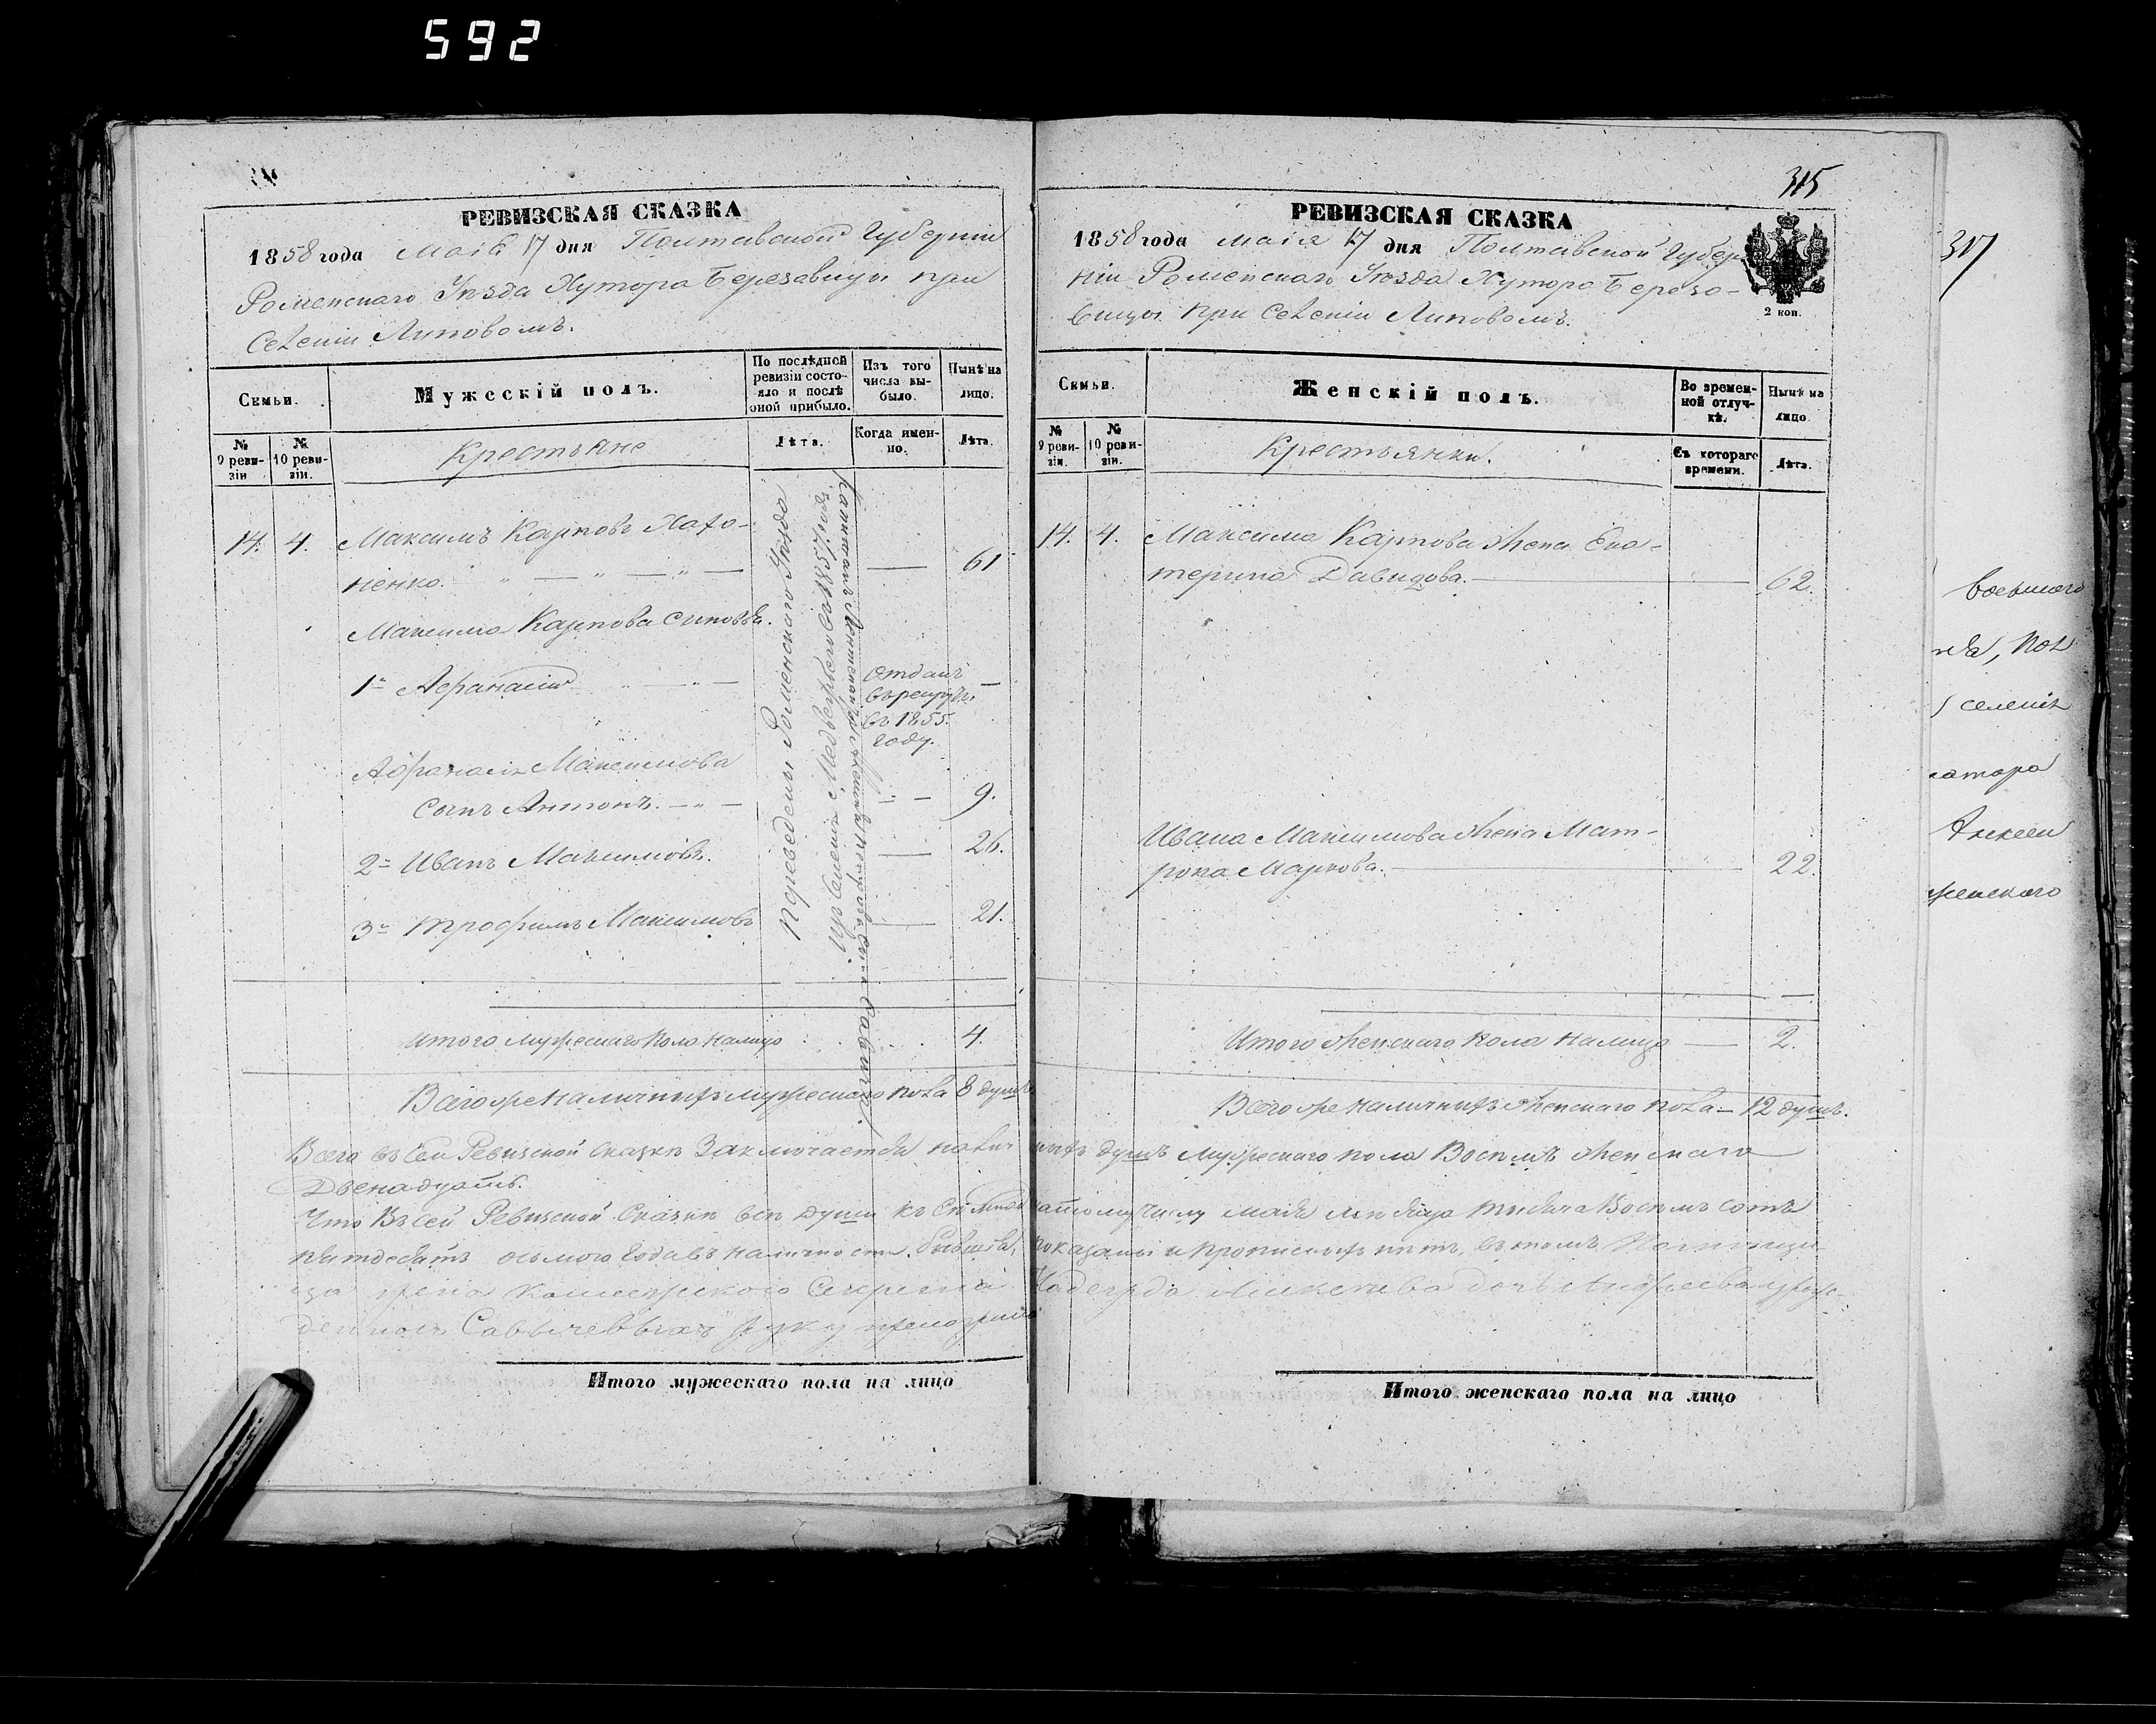 592
РЕВИЗСКАЯ СКАЗКА
1858 года маія 17 дня Полтавской Губерніи
Роменскаго Уѣзда Хутора Березовицы при
Селеніи Липовомъ.
Семьи.
Мужескій полъ.
По послѣдней ревизіи состояло и послѣ оной прибыло.
Изъ того числа выбыло.
Нынѣ на лицо.
№ 9 ревизіи
№ 10 ревизіи.
Крестьяне
Лѣта.
Когда именно.
Лѣта.
14. 4. Максимъ Карповъ Хахо-
ненко. 61
Максима Карпова синовья.
1й Афанасій
отданъ
въ рекруты
въ 1855.
году.
Афанасія Максимова
сынъ Антонъ. 9.
2й Иванъ Максимовъ. 26.
3й Трофимъ Максимовъ 21.
Переведены Роменскаго Уѣзда
изъ Селенія Медвежьего въ 1857 годѣ
Итого мужескаго пола налицо 4.
Всего же наличныхъ мужескаго пола 8 душъ
315
РЕВИЗСКАЯ СКАЗКА
1858 года маія 17 дня Полтавской Губер
ніи Роменскаго Уѣзда Хутора Березо-
вицы при Селеніи Липовомъ.
2 коп.
Семьи.
Женскій полъ.
Во временной отлучкѣ.
Нынѣ на лицо.
№ 9 ревизіи.
№ 10 ревизіи.
Крестьянки.
Съ котораго времени.
Лѣта.
14. 4. Максима Карпова жена Ека-
терина Давидова. 62.
Ивана Максимова жена Мат-
рона Маркова. 22.
Итого женскаго пола налицо 2.
Всего же наличныхъ женскаго пола 12 душъ.
Всего въ сей Ревизской Сказкѣ Заключается налич ныхъ душъ мужескаго пола Восемъ женскаго
Двенадцать.
Что въ сей Ревизской Сказкѣ всѣ души къ числу маія мѣсяца тысяча Восемъ сотъ
пятдесятъ осьмого года въ наличности показаны и прописныхъ нѣтъ, въ томъ
жена Коллежскаго Секретаря Надежда Алексѣева дочь
руку приложила
Итого мужескаго пола на лицо
Итого женскаго пола на лицо
317
селенія